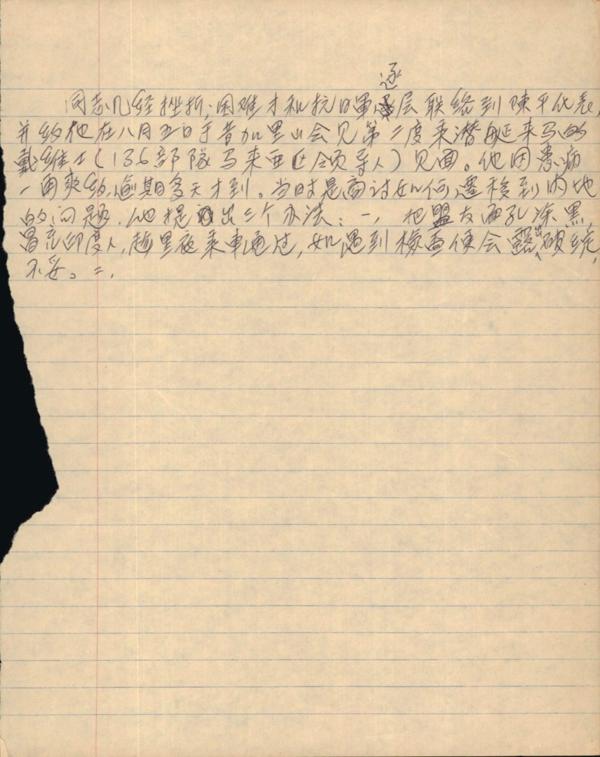 同志几经挫折、困难才和抗日軍逐层联络到陳平代表,
并约他在八月五日于昔加里山会见第二度乘潜艇来马的
戴维(136部隊马来亚区领导人)见面。他因患病
一再爽约,逾期多天才到。当时是商讨如何遷移到内地
的问题,他提出三个办法:一,把盟友面孔涂黑,
冒充印度人,趁黑夜乘車通过,如遇到檢查便会露出破绽,
不妥。二,